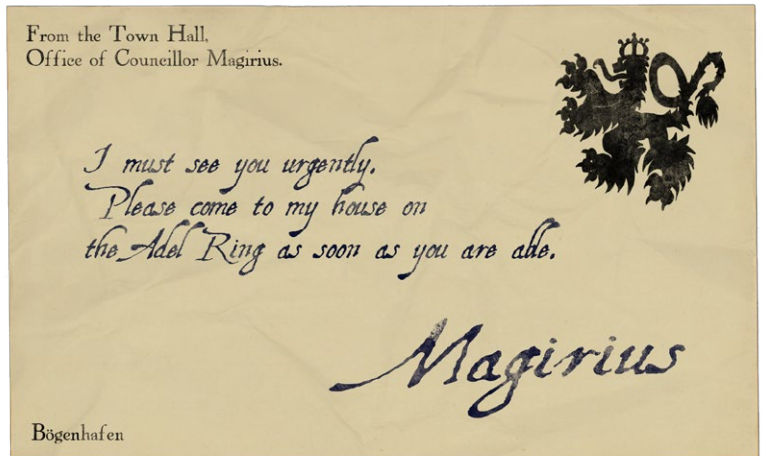 From the Town Hall,
Office of Councillor Magirius.
I must see you urgently.
Please come to my house on
the Adel Ring as soon as you are able.
Magirius
Bögenhafen